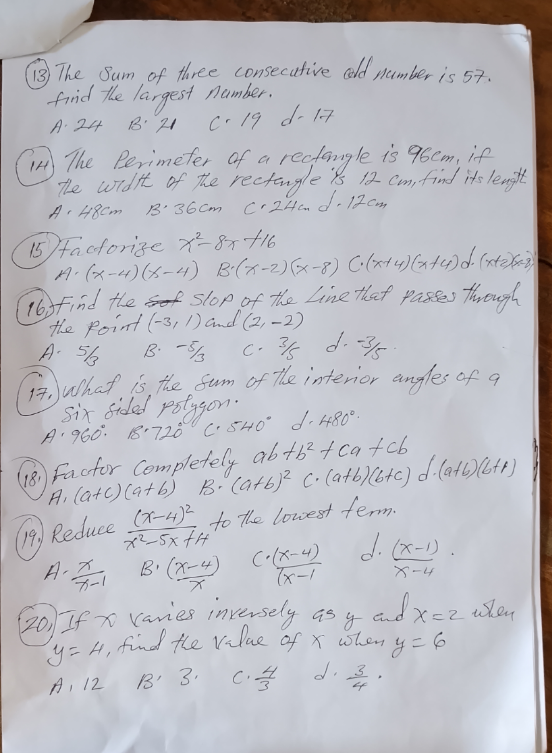 13) The Sum of three consecutive odd number is 57.
find the largest Number.
A. 24 B. 21 C. 19 d. 17
14) The Perimeter of a rectangle is 96cm, if
the width of the rectangle is 12 cm, find its length
A. 48cm B. 36cm C. 24cm d. 12cm
15) Factorize x²-8x+16
A. (x-4)(x-4) B. (x-2)(x-8) C. (x+4)(x+4) d. (x+2)(x+8)
16) Find the Slop of the Line that passes through
the point (-3, 1) and (2, -2)
A. 5/3 B. -5/3 C. 3/5 d. -3/5.
17.) What is the Sum of the interior angles of a
Six sided polygon.
A. 960° B. 720° C. 540° d. 480°.
18.) Factor Completely ab+b²+ca+cb
A. (a+c)(a+b) B. (a+b)² C. (a+b)(b+c) d. (a+b)(b+1)
19.) Reduce (x-4)²/x²-5x+4 to the lowest term.
A. x/x-1 B. (x-4)/x C. (x-4)/(x-1 d. (x-1)/x-4.
20.) If x varies inversely as y and x=2 when
y=4, find the value of x when y=6
A. 12 B. 3. C. 4/3 d. 3/4.